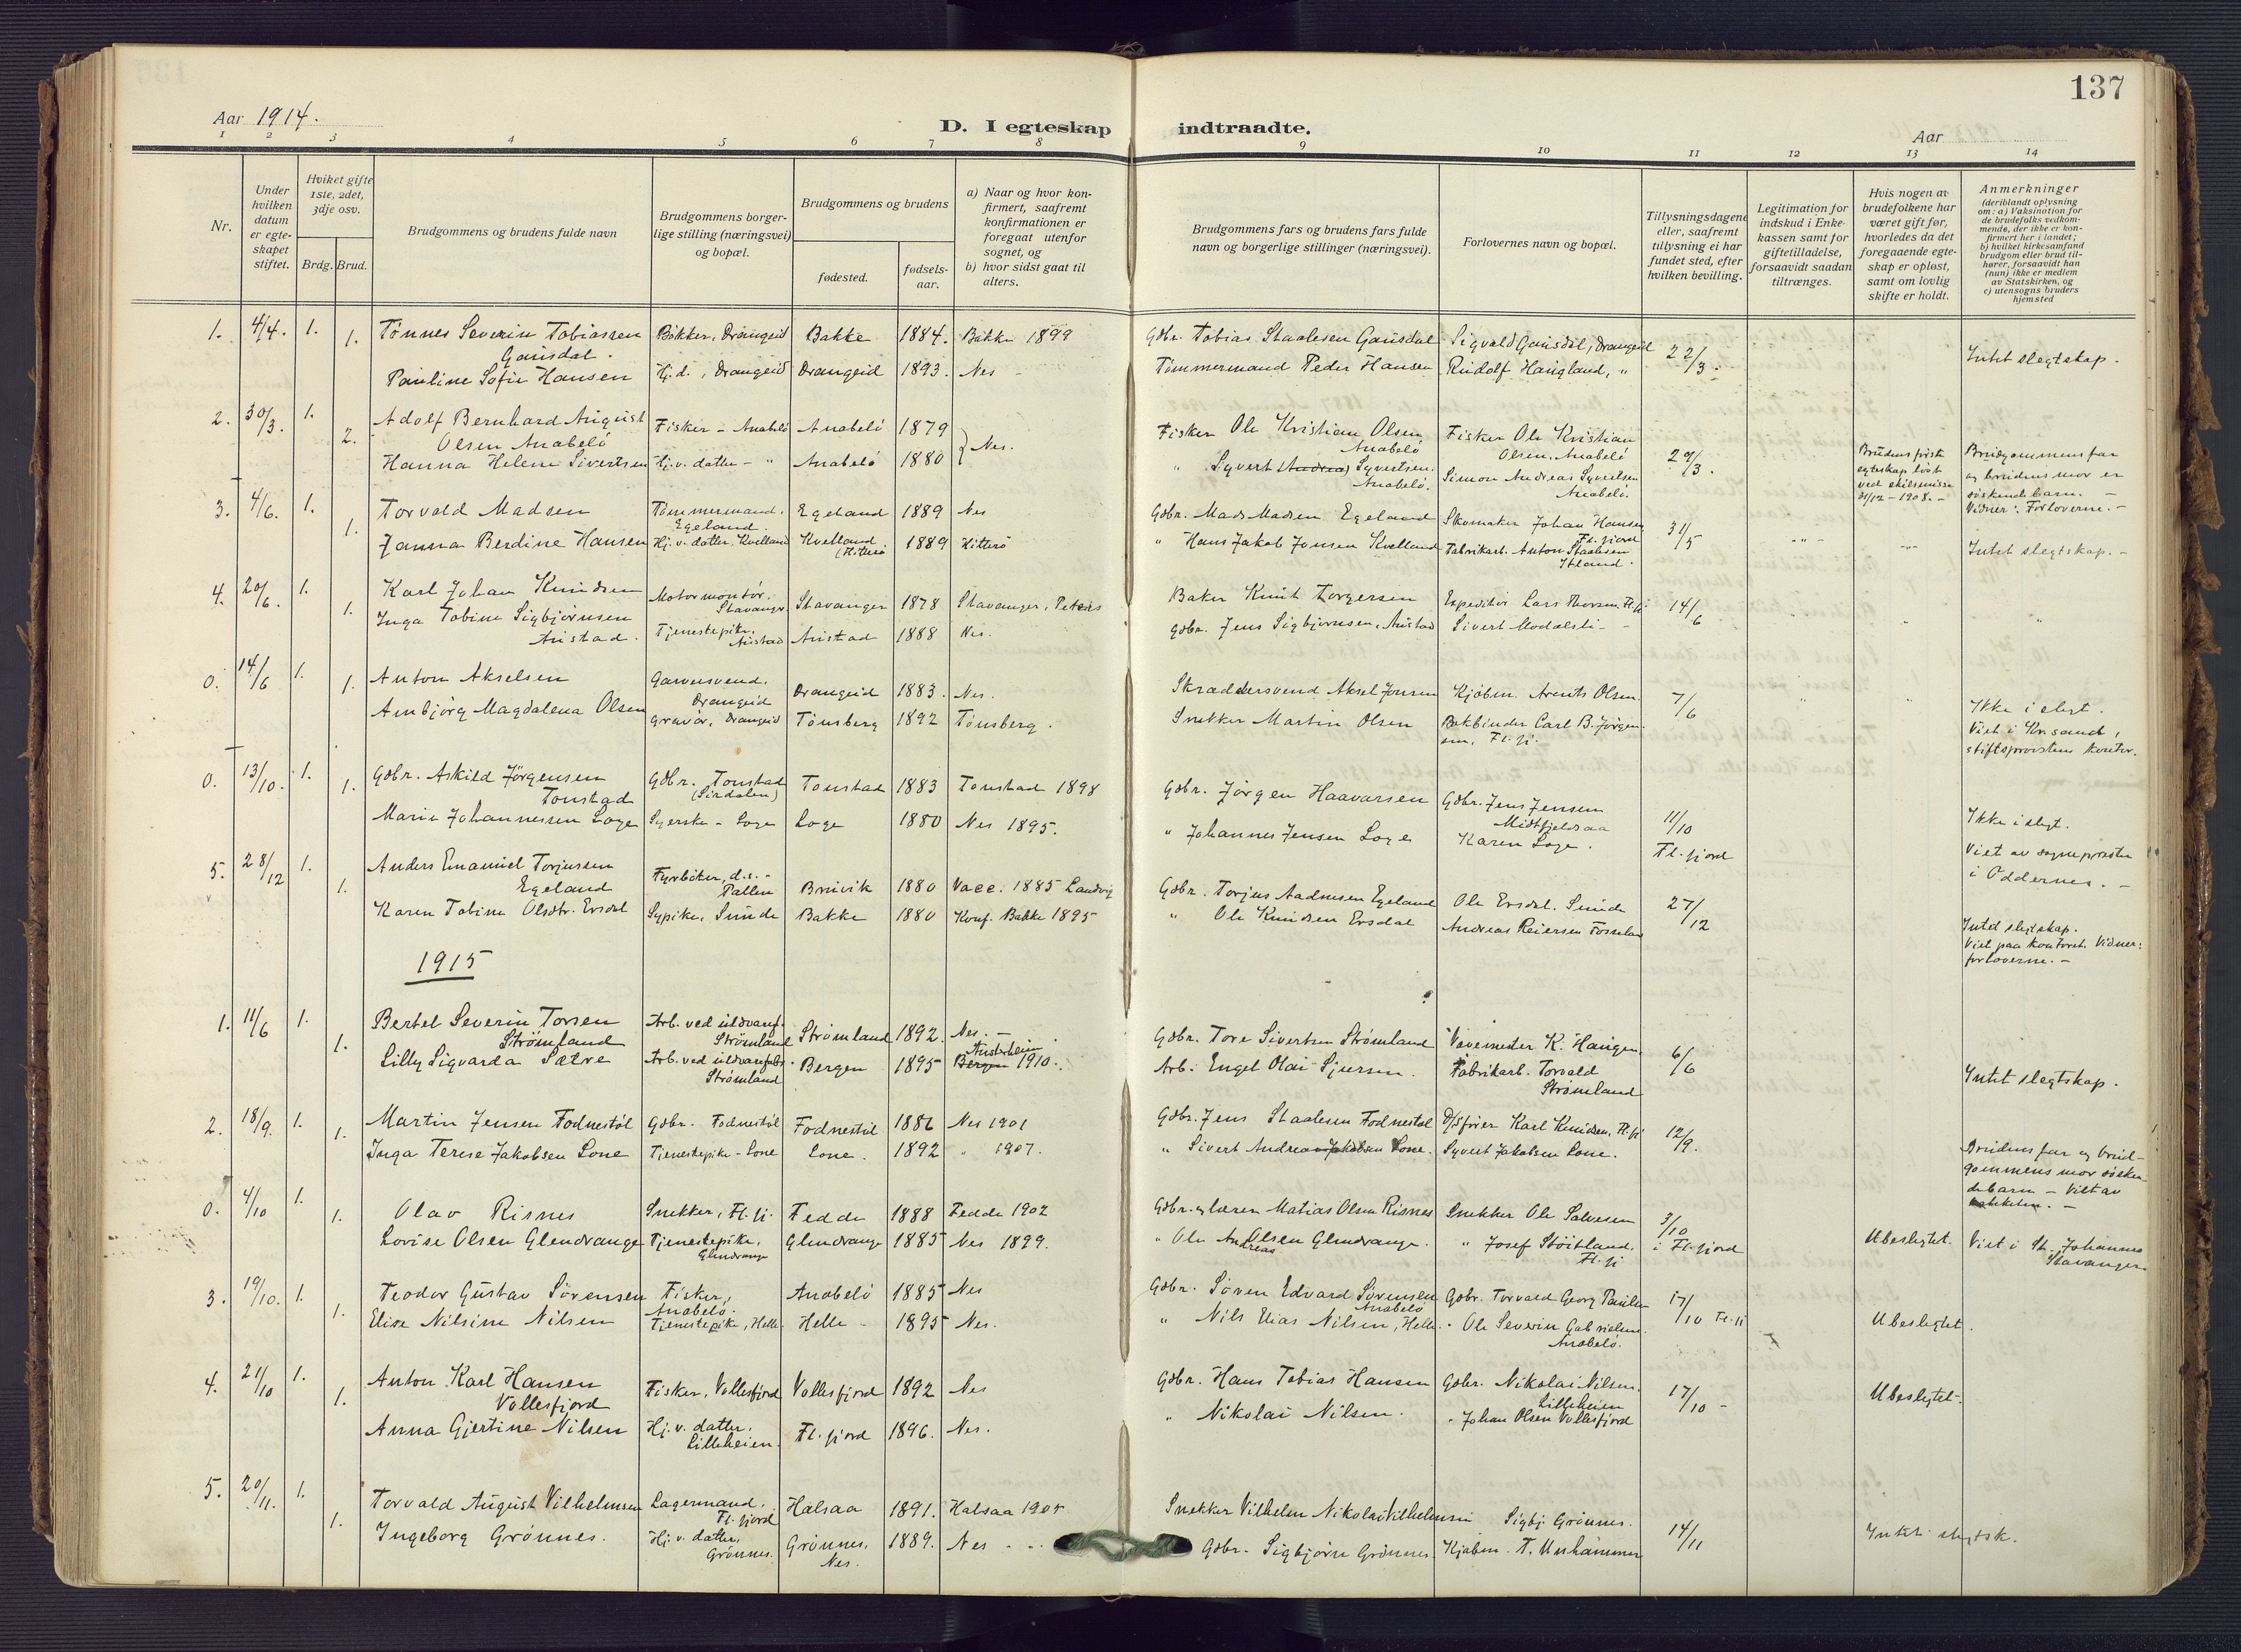 137
Aar 1914.
D. I egteskap indtraadte.
Aar
1 2 3 4 5 6 7 8 9 10 11 12 13 14
Nr.
Under hvilken datum er egteskapet stiftet.
Hviket gifte 1ste, 2det, 3dje osv.
Brdg. Brud.
Brudgommens og brudens fulde navn
Brudgommens borgerlige stilling (næringsvei) og bopæl.
Brudgommens og brudens
fødested.
fødselsaar.
a) Naar og hvor konfirmert, saafremt konfirmationen er foregaat utenfor sognet, og
b) hvor sidst gaat til alters.
Brudgommens fars og brudens fars fulde navn og borgerlige stillinger (næringsvei).
Forlovernes navn og bopæl.
Tillysningsdagene eller, saafremt tillysning ei har fundet sted, efter hvilken bevilling.
Legitimation for indskud i Enkekassen samt for giftetilladelse, forsaavidt saadan tiltrænges.
Hvis nogen av brudefolkene har været gift før, hvorledes da det foregaaende egteskap er opløst, samt om lovlig skifte er holdt.
Anmerkninger (deriblandt oplysning om: a) Vaksination for de brudefolks vedkommende, der ikke er konfirmert her i landet; b) hvilket kirkesamfund brudgom eller brud tilhører, forsaavidt han (hun) ikke er medlem av Statskirken, og c) utensogns bruders hjemsted
1. 4/4. 1. Tønnes Severin Tobiassen Gausdal. Bakker, Drangeid Bakke 1884. Bakke 1899 Gdbr. Tobias Staalesen Gausdal Sigvald Gausdal, Drangeid 22/3.
1. Pauline Sofie Hansen Hj.d., Drangeid Drangeid 1893. Nes - Tømmermand Peder Hansen Rudolf Haugland, " Intet slegtskap.
2. 30/3. 1. Adolf Bernhard August Olsen Anabelö Fisker - Anabelö Anabelö 1879 Nes. Fisker Ole Kristian Olsen Anabelö Fisker Ole Kristian Olsen, Anabelö 29/3.
2. Hanna Helene Sivertsen Hj.v. datter - " Anabelö 1880 " Syvert Syvertsen. Anabelö. Simon Andreas Syvertsen Anabelö. Brudens første egteskap löst ved skilsmisse 31/12 - 1908. - Brudgommens far og brudens mor er söskendebarn. - Vidner: Forloverne. -
3. 4/6. 1. Torvald Madsen Tømmermand. Egeland. Egeland 1889 Nes Gdbr. Mads Madsen Egeland Skomaker Johan Hansen Fl.fjord 31/5
1. Janna Berdine Hansen Hj.v. datter, Kvelland Kvelland (Hitterö 1889 Hitterö " Hans Jakob Jonsen Kvelland Fabrikarb. Anton Staalesen Itland. Intet slegtskap. -
4. 20/6. 1. Karl Johan Knudsen Motormontör. Stavanger Stavanger 1878 Stavanger, Petors Baker Knut Torgersen Expeditör Lars Thorsen. Fl.fj. 14/6
1. Inga Tobine Sigbjørnsen Austad. Tjenestepike, Austad Austad 1888 Nes. Gdbr. Jens Sigbjørnsen, Austad Sivert Modalsli -
0. 14/6 1. Anton Akselsen Garversvend. Drangeid Drangeid 1883. Nes. Skræddersvend Aksel Jonsen Kjöbm. Arents Olsen. 7/6
1. Ambjörg Magdalena Olsen Gravör, Drangeid Tönsberg 1892 Tönsberg. Snekker Martin Olsen Bokbinder Carl B. Jørgensen, Fl.fj. Ikke i slegt. Viet i Kr.sand, stiftsprovstens kontor.
0. 13/10. 1. Gdbr. Askild Jørgensen Tonstad Gdbr. Tonstad (Sirdalen) Tonstad 1883 Tonstad 1898 Gdbr. Jörgen Haavarsen Gdbr. Jens Jensen Midtfjeldsaa 11/10 Fl.fjord
1. Marie Johannessen Loge Syerske - Loge Loge 1880 Nes 1895. " Johannes Jensen Loge Karen Loge. Ikke i slegt. Viet av sogneprosten i Oddernes. -
5. 28/12 1. Anders Emanuel Torjusen Egeland Fyrböter, d.s. - Pallen Bruvik 1880 Vacc. 1885 Landvig Gdbr. Torjus Aadnesen Egeland Ole Ersdal. Sunde 27/12
1. Karen Tobine Olsdtr. Ersdal Sypike, Sunde Bakke 1880 Konf. Bakke 1895 " Ole Knudsen Ersdal Andreas Reiersen Fosseland Intet slegtskap. Viet paa kontoret. Vidner: forloverne. -
1915
1. 11/6 1. Bertel Severin Torsen Strömland Arb. ved uldvaref. Strömland Strömland 1892. Nes. - Gdbr. Tore Sivertsen Strömland Vævemester K. Haugen. 6/6
1. Lilly Sigvarda Sætre Arb. ved uldvarefabr. Strömland Bergen 1895 Bergen Austrheim 1910. Arb. Engel Olai Sjursen. Fabrikarb. Torvald Strömland Intet slegtskap.
2. 18/9. 1. Martin Jensen Fodnestöl Gdbr. Fodnestöl Fodnestöl 1886 Nes 1901 Gdbr. Jens Staalesen Fodnestöl D/Sfører Karl Knudsen, Fl.fj. 12/9.
1. Inga Terese Jakobsen Lone Tjenestepike - Lone Lone. 1892 " 1907. " Sivert Andreas Jakobsen Lone. Syvert Jakobsen Lone. Brudens far og brudgommens mor söskendebarn - Viet av
0. 4/10 1. Olav Risnes Snekker, Fl.fj. Fedde 1888 Fedde 1902 Gdbr. og lærer Matias Olsen Risnes Snekker Ole Salvesen 3/10 i Fl.fjord
1. Lovise Olsen Glendrange Tjenestepike, Glendrange Glendrange 1885 Nes 1899. " Ole Andreas Olsen Glendrange. " Josef Stöitland. Fl.fj Ubeslegtet. Viet i St. Johannes Stavanger.
3. 19/10. 1. Teodor Gustav Sörensen Fisker, Anabelö. Anabelö 1885 Nes Gdbr. Sören Edvard Sörensen Anabelö Gdbr. Torvald Georg Paulsen 17/10 Fl.fj
1. Elise Nilsine Nilsen Tjenestepike, Helle. Helle - 1895 Nes. " Nils Elias Nilsen, Helle. " Ole Severin Gabrielsen. Anabelö. Ubeslegtet.
4. 21/10 1. Anton Karl Hansen Vollesfjord Fisker, Vollesfjord Vollesfjord 1892 Nes Gdbr. Hans Tobias Hansen Gdbr. Nikolai Nilsen. Lilleheien 17/10 -
1. Anna Gjertine Nilsen Hj.v. datter, Lilleheien. Fl.fjord 1896. Nes. " Nikolai Nilsen. " Johan Olsen Vollesfjord Ubeslegtet.
5. 20/11. 1. Torvald August Vilhelmsen Lagermand. Fl.fjord Halsaa 1891. Halsaa 1905 Snekker Vilhelm Nikolai Vilhelmsen Sigbj. Grönnes. 14/11
1. Ingeborg Grönnes. Hj.v. datter, Grönnes. Grönnes, Nes. 1889. Nes - Gdbr. Sigbjörn Grönnes. Kjöbm. T. Unhammer Intet slegtsk.